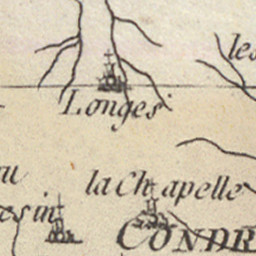 les
Longes
la Chapelle
esin
CONDR